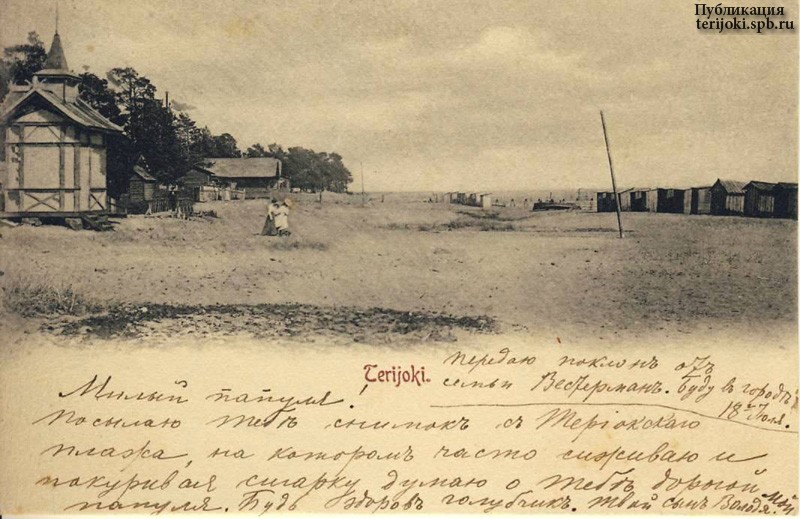 Публикация
terijoki.spb.ru
Terijoki.
Передаю поклонъ отъ
семьи Вестерманъ. Буду въ городѣ
18го Июля.
Милый папуля!
Посылаю тебѣ снимокъ съ Теріокскаго
пляжа, на которомъ часто сиживаю и
покуривая сигарку думаю о тебѣ дорогой мой
папуля. Будь здоровъ голубчик. Твой сынъ Володя.